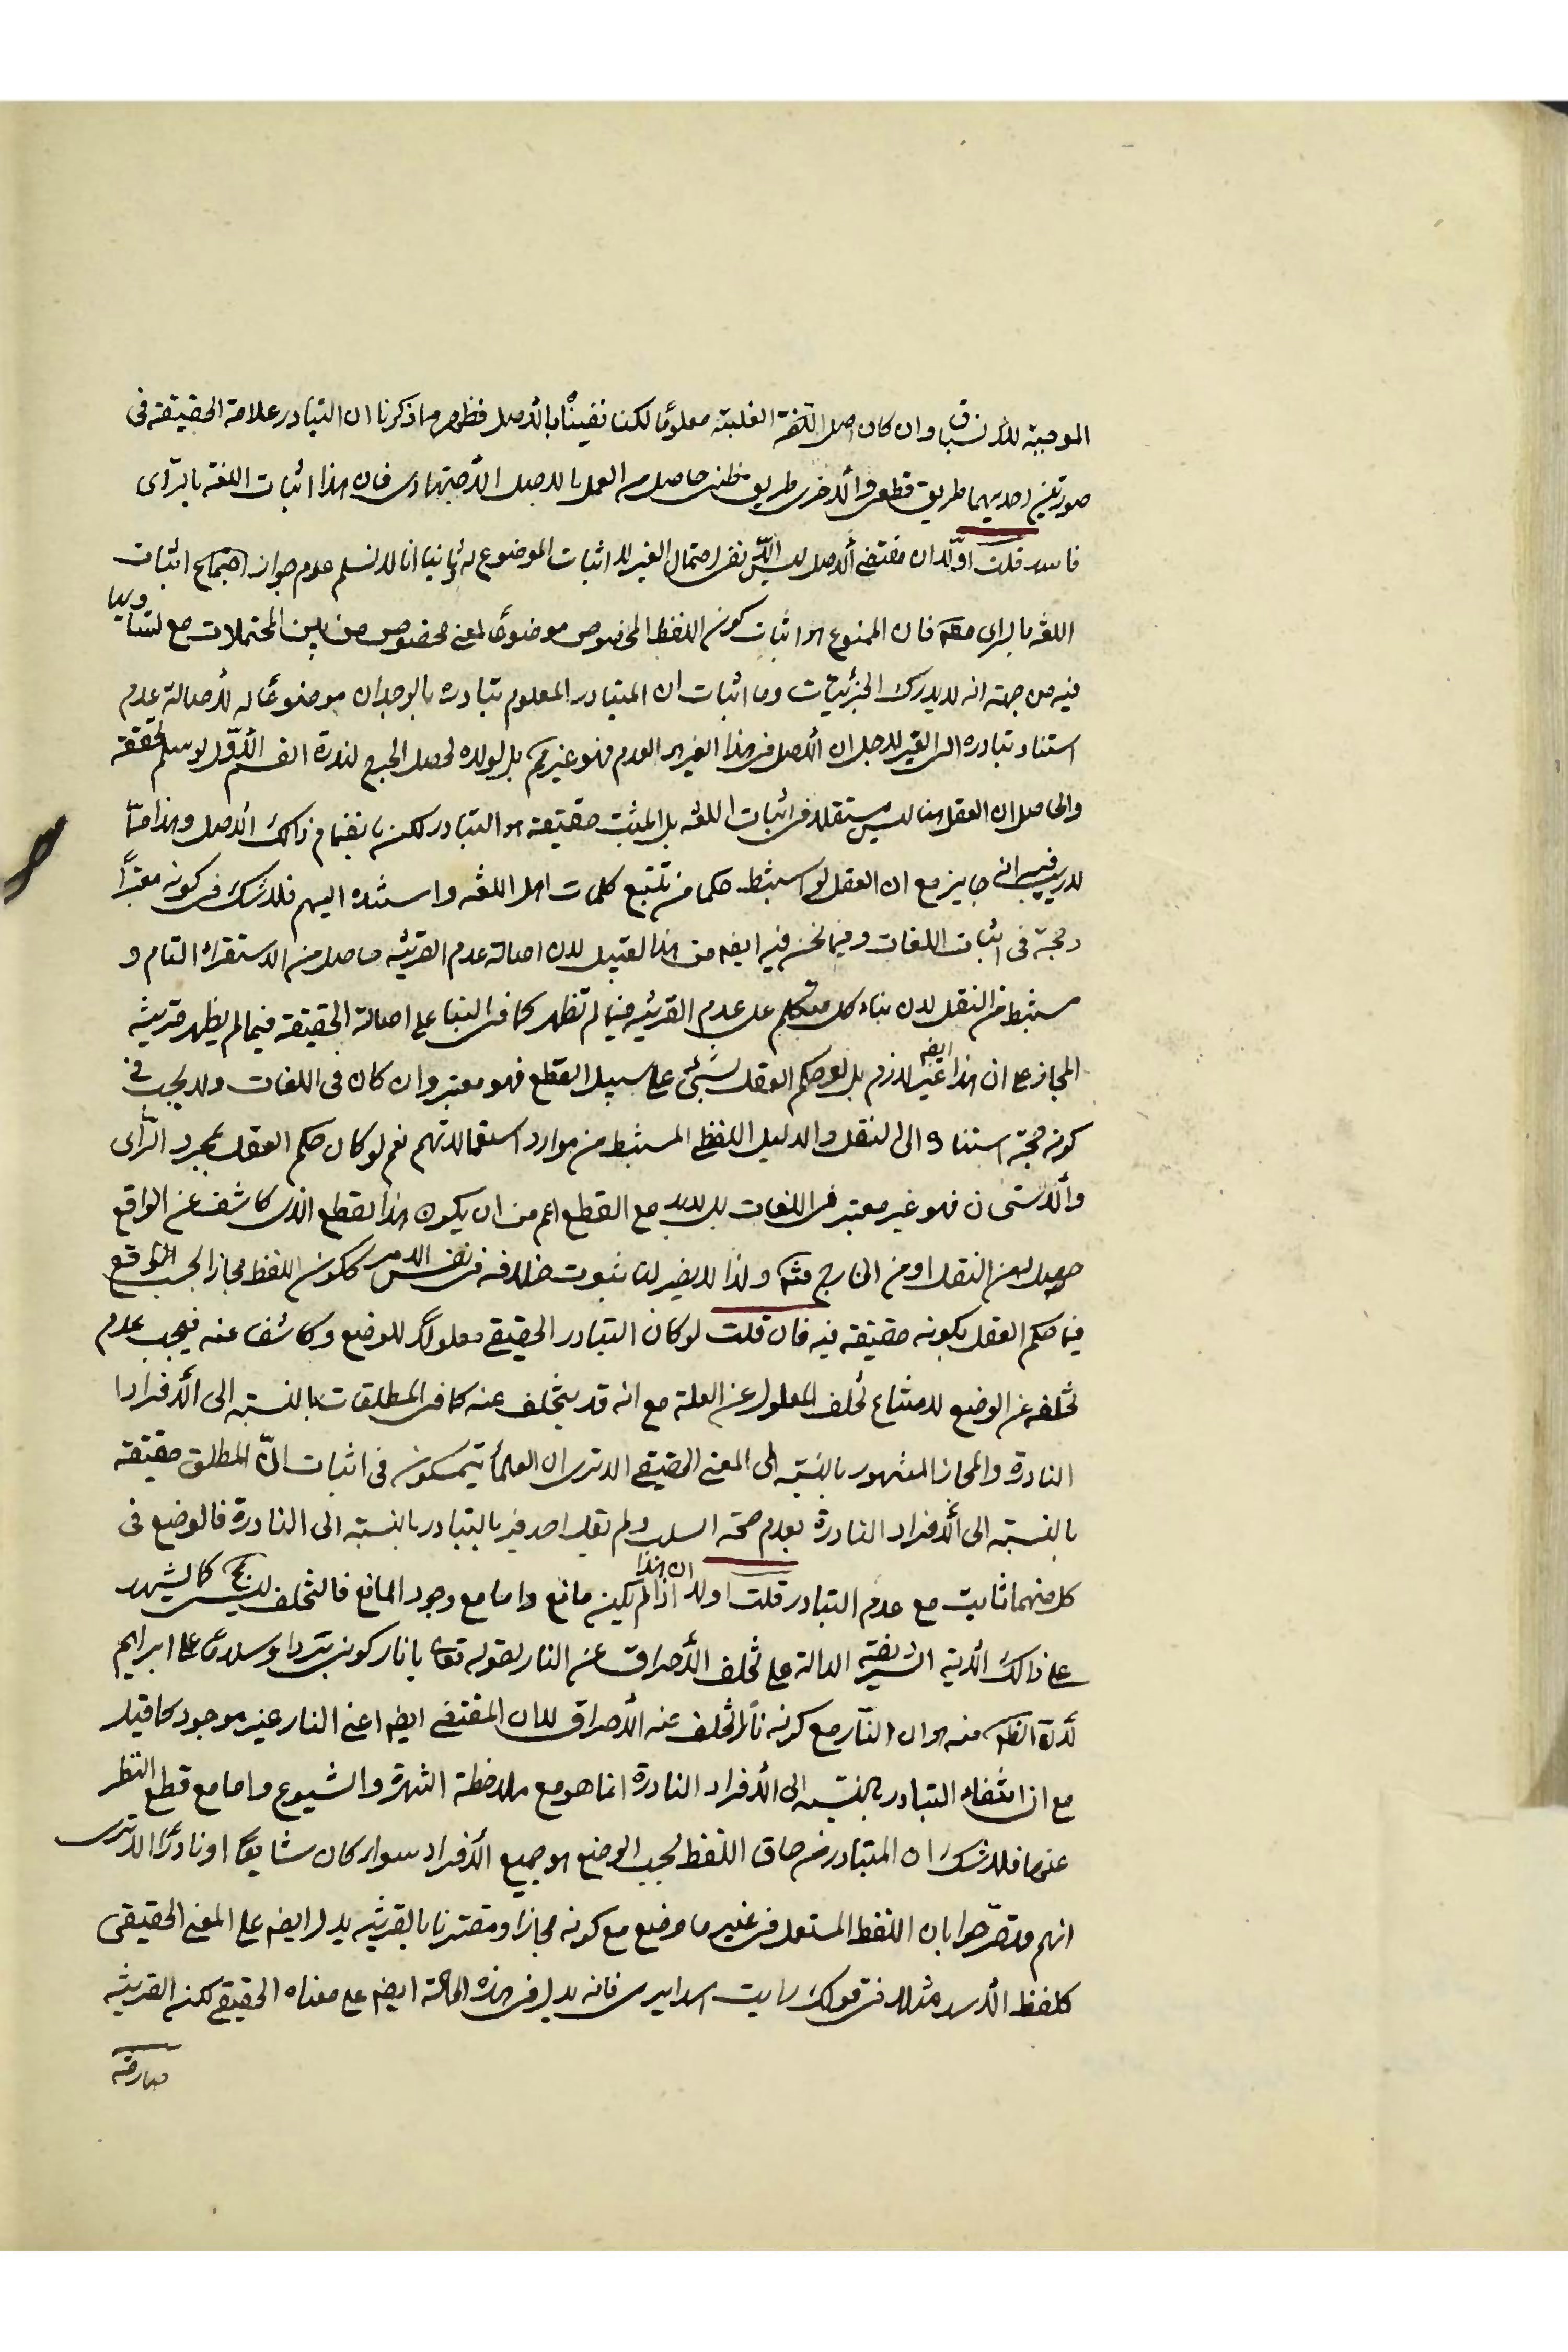 الموجبة للأنسباق وان كان اصل الكثرة الغلبة معلومًا لكنا نفيناه بالأصل فظهر مما ذكرنا ان التبادر علامة الحقيقة فى
صورتين احديهما طريق قطعى والأخرى طريق ظنى حاصل من العمل بالاصل الأجتهادى فان هذا اثبات اللغة بالرّأى
فاسد قلت اوّلا ان مقتضى الأصل ليس الّا نفى احتمال الغير لا اثبات الموضوع له ثانيا انا لا نسلم عدم جواز اجتماع اثبات
اللغة بالراى مطم فان الممنوع هو اثبات كون اللفظ المخصوص موضوعًا لمعنى مخصوص من بين المحتملات مع تساويها
فيه من جهة انه لا يدرك الجزئيات وما اثبات ان المتبادر المعلوم تبادره بالوجدان موضوعًا له لأصالة عدم
استناد تبادره الى الغير لاجل ان الأصل فى هذا الغير العدم فهو غير مم بل لولاه لحصل الحرج لندرة القسم الأوّل لو سلم تحققه
والحاصل ان العقل هنا ليس مستقلا فى اثبات اللغه بل المثبت حقيقة هو التبادر لكن بانضمام ذالك الأصل وهذا ممّا
لا ريب فى انه جايز مع ان العقل لو استنبط حكما من تتبع كلمات اهل اللغه واسنده اليهم فلا شك فى كونه معتبرًا
وحجة فى اثبات اللغات وفيما نحن فيه ايضا من هذا القبيل لان اصالة عدم القرينه حاصل من الاستقراء التام و
مستنبط من النقل لان بناء كل متكلم على عدم القرينه فيما لم تظهر كما فى البنا على اصالة الحقيقة فيما لم يظهر قرينة
المجاز على ان هذا ايضا غير لازم بل لو حكم العقل بشيئ على سبيل القطع فهو معتبر وان كان فى اللغات ولا يجب فى
كونه حجة استناده الى النقل والدليل اللفظى المستنبط من موارد استعمالاتهم نعم لو كان حكم العقل بمجرد الرّأى
والأستحسان فهو غير معتبر فى اللغات بل لابد مع القطع اعم من ان يكون هذا القطع الذى كاشف عن الواقع
حصل من النقل او من الخارج مثله ولذا لا يضر لنا ثبوت خلافه فى نفس الامر ككون اللفظ مجازا بحسب الواقع
فيما حكم العقل بكونه حقيقة فيه فان قلت لو كان التبادر الحقيقى معلولًا للوضع وكاشفا عنه فيجب عدم
تخلفه عن الوضع لامتناع تخلف المعلول عن العلة مع انه قد يتخلف عنه كما فى المطلقات بالنسبة الى الأفراد ا
النادرة والمجاز المشهور بالنسبة الى المعنى الحقيقى الا ترى ان العلمأ يتمسكون فى اثبات انّ المطلق حقيقة
بالنسبة الى الأفراد النادرة بعدم صحة السلب ولم يقل احد فيه بالتبادر بالنسبة الى النادرة فالوضع فى
كل منهما ثابت مع عدم التبادر قلت اولا ان هذا اذا لم يكن مانع واما مع وجود المانع فالتخلف ليس كما يشهد
على ذالك الأية الشريفة الدالة على تخلف الأحراق عن النار لقوله تعا يا نار كونى بردا وسلامًا على ابراهيم
لأن الظم منه هو ان النّار مع كونه نارًا تخلف عنه الأحراق لا ان المقتضى ايضا اعنى النار غير موجود كما قيل
مع ان انتفاء التبادر بالنسبة الى الأفراد النادرة انما هو مع ملاحظة الشهرة والشيوع واما مع قطع النظر
عنهما فلا شك ان المتبادر من حاق اللفظ بحسب الوضع هو جميع الأفراد سواء كان شايعًا او نادرًا الا ترى
انهم قد صّرحوا بان اللفظ المستعمل فى غير ما وضع مع كونه مجازا ومقترنا بالقرينه يدل ايضا على المعنى الحقيقى
كلفظ الأسد مثلا فى قولك رايت اسدا يرمى فانه يدل فى هذه الحالة ايضا على معناه الحقيقى لكن القرينة
صارفة